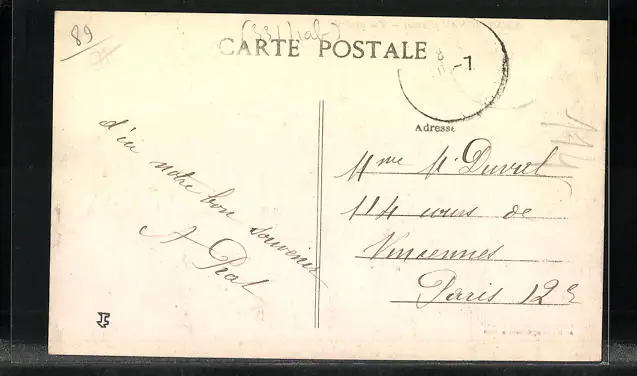 89
(331/lab)
CARTE POSTALE
8
-7
Adresse
d'ici notre bon souvenir
A Prat
Mme M. Duvul
114 cours de
Vincennes
Paris 12e
114